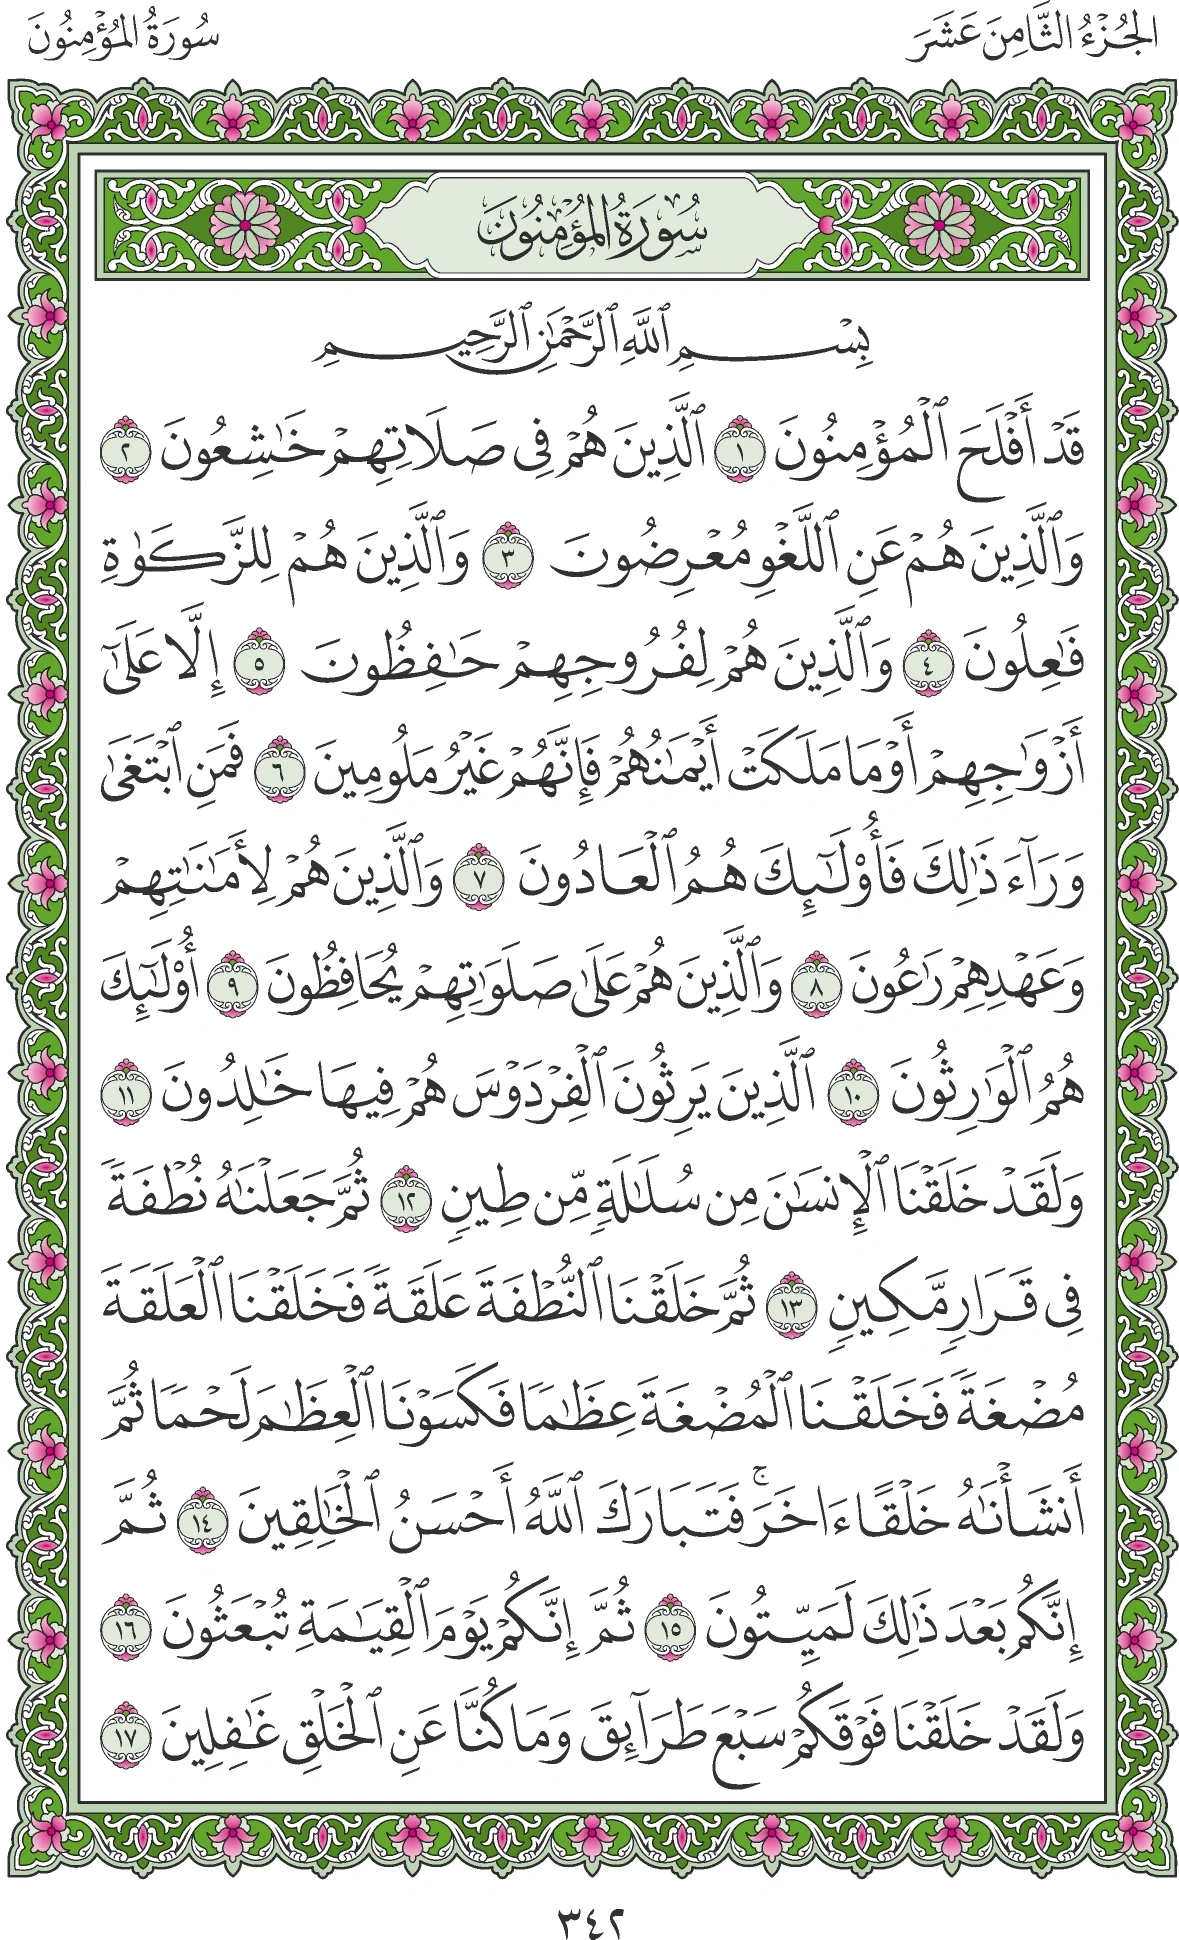 الجُزْءُ الثَّامِنَ عَشَرَ
سُورَةُ المُؤْمِنُونَ
سُورَةُ المُؤْمِنُونَ
بِسْمِ ٱللَّهِ ٱلرَّحْمَٰنِ ٱلرَّحِيمِ
قَدْ أَفْلَحَ ٱلْمُؤْمِنُونَ ١ ٱلَّذِينَ هُمْ فِى صَلَاتِهِمْ خَٰشِعُونَ ٢
وَٱلَّذِينَ هُمْ عَنِ ٱللَّغْوِ مُعْرِضُونَ ٣ وَٱلَّذِينَ هُمْ لِلزَّكَوٰةِ
فَٰعِلُونَ ٤ وَٱلَّذِينَ هُمْ لِفُرُوجِهِمْ حَٰفِظُونَ ٥ إِلَّا عَلَىٰٓ
أَزْوَٰجِهِمْ أَوْ مَا مَلَكَتْ أَيْمَٰنُهُمْ فَإِنَّهُمْ غَيْرُ مَلُومِينَ ٦ فَمَنِ ٱبْتَغَىٰ
وَرَآءَ ذَٰلِكَ فَأُو۟لَٰٓئِكَ هُمُ ٱلْعَادُونَ ٧ وَٱلَّذِينَ هُمْ لِأَمَٰنَٰتِهِمْ
وَعَهْدِهِمْ رَٰعُونَ ٨ وَٱلَّذِينَ هُمْ عَلَىٰ صَلَوَٰتِهِمْ يُحَافِظُونَ ٩ أُو۟لَٰٓئِكَ
هُمُ ٱلْوَٰرِثُونَ ١٠ ٱلَّذِينَ يَرِثُونَ ٱلْفِرْدَوْسَ هُمْ فِيهَا خَٰلِدُونَ ١١
وَلَقَدْ خَلَقْنَا ٱلْإِنسَٰنَ مِن سُلَٰلَةٍ مِّن طِينٍ ١٢ ثُمَّ جَعَلْنَٰهُ نُطْفَةً
فِى قَرَارٍ مَّكِينٍ ١٣ ثُمَّ خَلَقْنَا ٱلنُّطْفَةَ عَلَقَةً فَخَلَقْنَا ٱلْعَلَقَةَ
مُضْغَةً فَخَلَقْنَا ٱلْمُضْغَةَ عِظَٰمًا فَكَسَوْنَا ٱلْعِظَٰمَ لَحْمًا ثُمَّ
أَنشَأْنَٰهُ خَلْقًا ءَاخَرَ ۚ فَتَبَارَكَ ٱللَّهُ أَحْسَنُ ٱلْخَٰلِقِينَ ١٤ ثُمَّ
إِنَّكُم بَعْدَ ذَٰلِكَ لَمَيِّتُونَ ١٥ ثُمَّ إِنَّكُمْ يَوْمَ ٱلْقِيَٰمَةِ تُبْعَثُونَ ١٦
وَلَقَدْ خَلَقْنَا فَوْقَكُمْ سَبْعَ طَرَآئِقَ وَمَا كُنَّا عَنِ ٱلْخَلْقِ غَٰفِلِينَ ١٧
٣٤٢